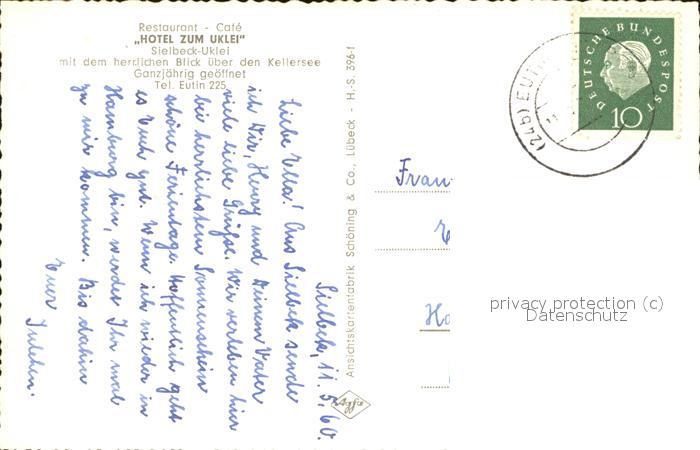 Restaurant - Café
„HOTEL ZUM UKLEI"
Sielbeck-Uklei
mit dem herrlichen Blick über den Kellersee
Ganzjährig geöffnet
Tel. Eutin 225
Sielbeck, 11.5.60.
Liebe Ella! Aus Sielbeck sende
ich Dir, Henry und Deinem Vater
viele liebe Grüße. Wir verleben hier
bei herrlichstem Sonnenschein
schöne Ferientage. Hoffentlich geht
es Euch gut. Wenn ich wieder in
Hamburg bin, werdet Ihr mal
zu mir kommen. Bis dahin
Euer
Julchen.
Ansichtskartenfabrik Schöning & Co., Lübeck - H.-S. 396-f
Agfa
DEUTSCHE BUNDESPOST
10
(24b) EUTIN
Frau
privacy protection (c)
Datenschutz